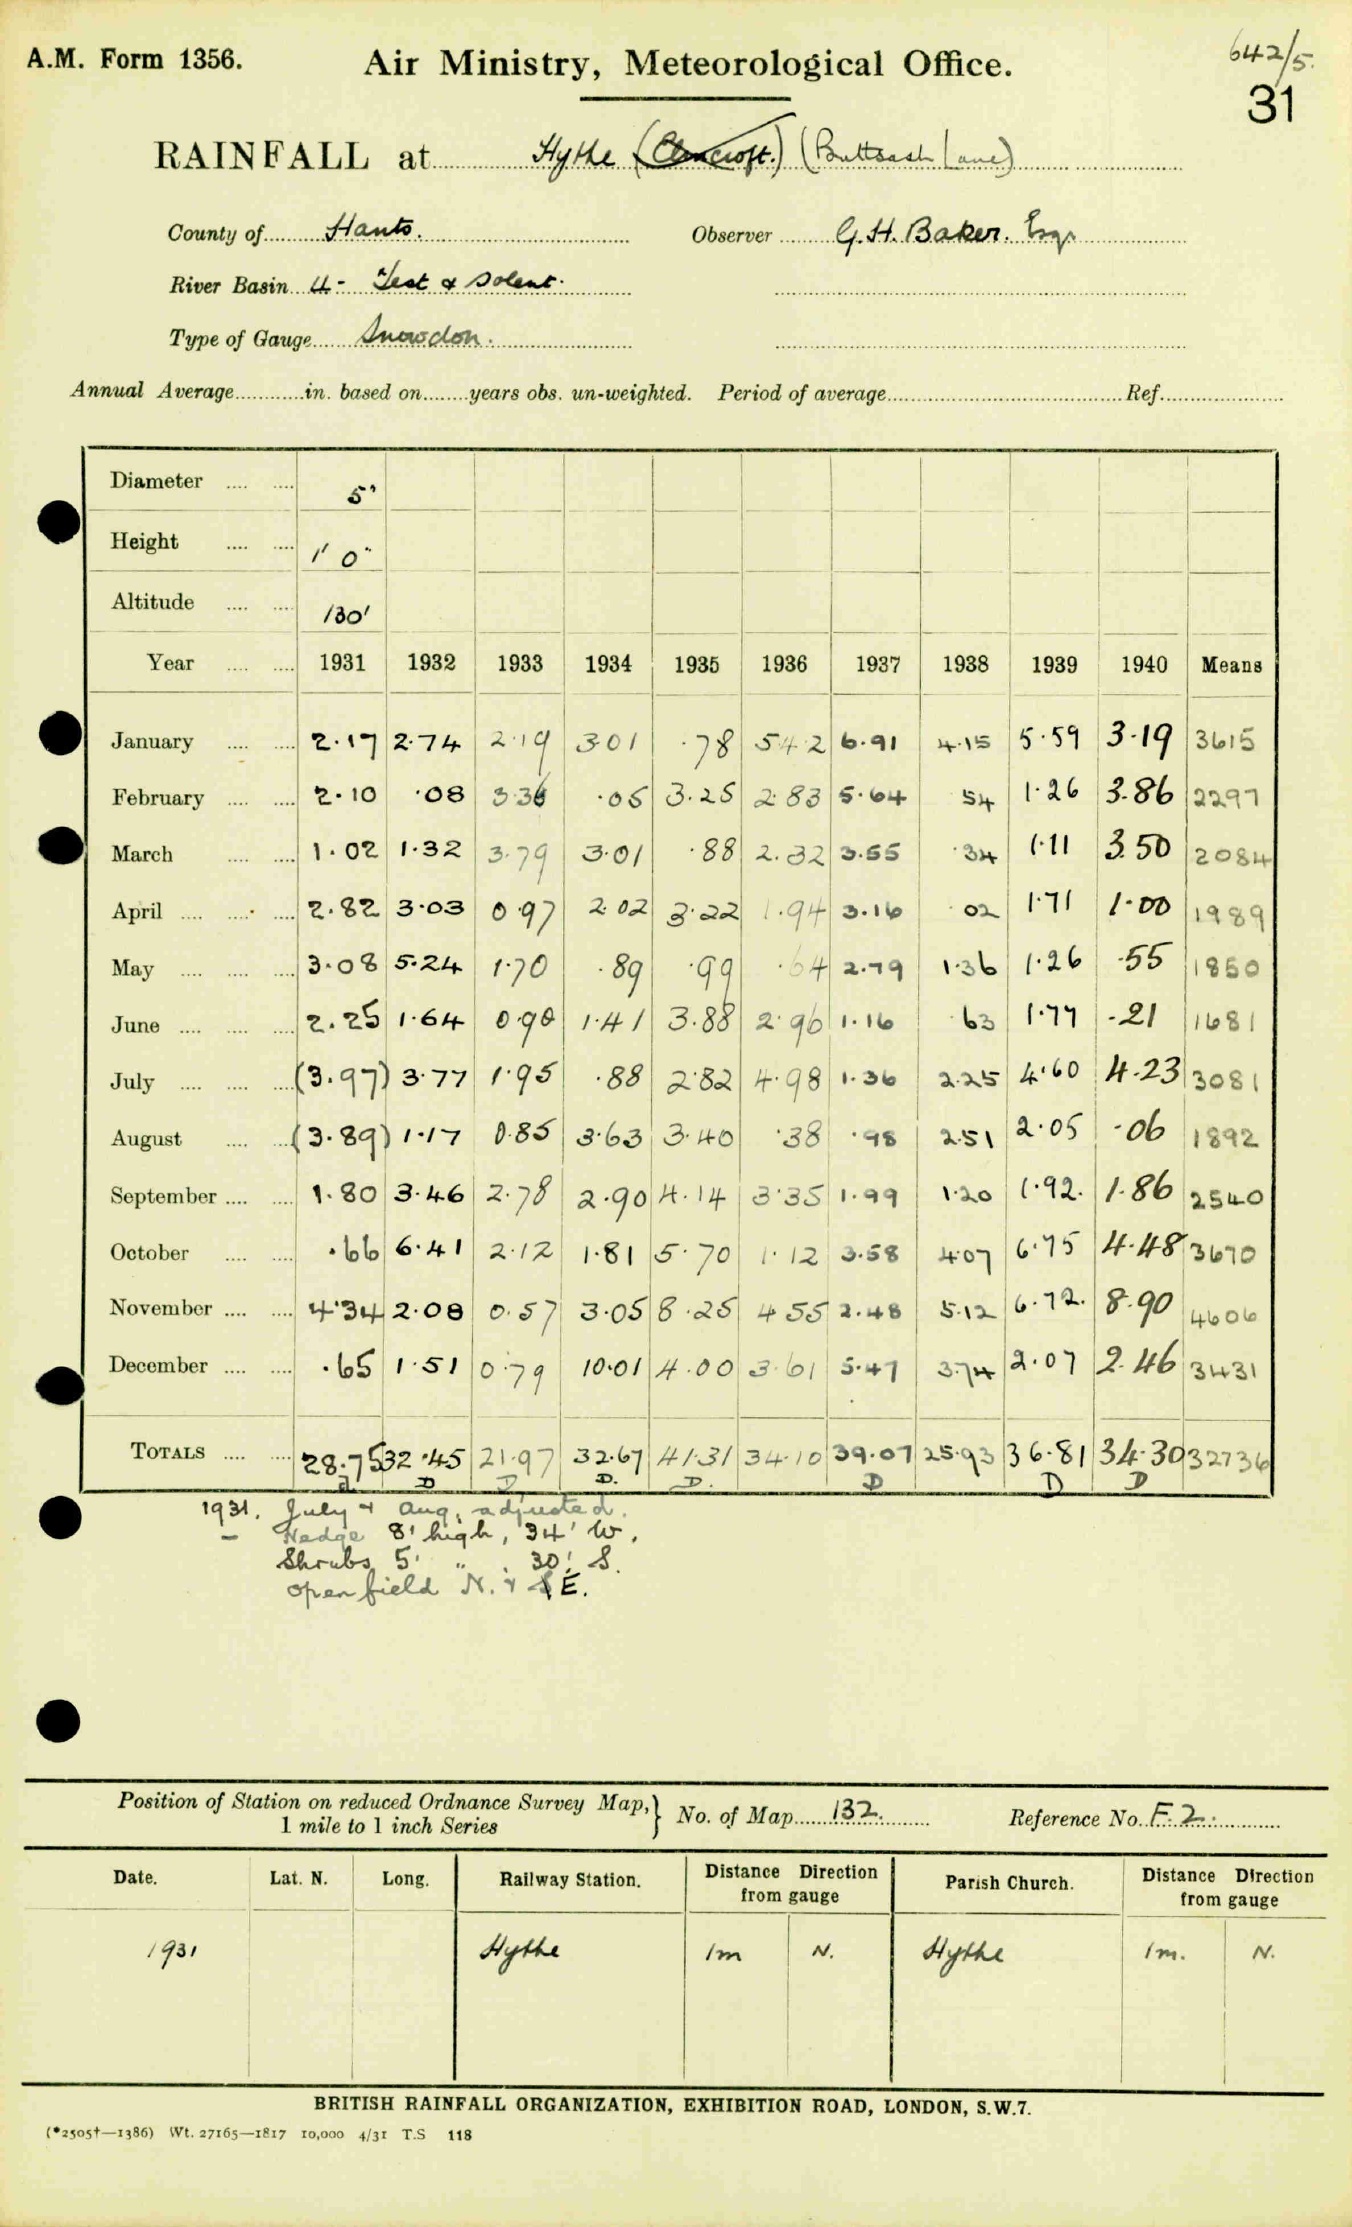 A.M. Form 1356.
Air Ministry, Meteorological Office.
642/5.
31
RAINFALL at Hythe (Elmcroft.) (Buttsash Lane)
County of Hants. Observer G. H. Baker. Esqr
River Basin 4- Test & Solent.
Type of Gauge Snowdon.
Annual Average in. based on years obs. un-weighted. Period of average Ref.
Diameter 5"
Height 1' 0"
Altitude 130'
Year 1931 1932 1933 1934 1935 1936 1937 1938 1939 1940 Means
January 2.17 2.74 2.19 3.01 .78 5.42 6.91 4.15 5.59 3.19 3615
February 2.10 .08 3.36 .05 3.25 2.83 5.64 54 1.26 3.86 2297
March 1.02 1.32 3.79 3.01 .88 2.32 3.55 .34 1.11 3.50 2084
April 2.82 3.03 0.97 2.02 3.22 1.94 3.16 .02 1.71 1.00 1989
May 3.08 5.24 1.70 .89 .99 .64 2.79 1.36 1.26 .55 1850
June 2.25 1.64 0.90 1.41 3.88 2.96 1.16 .63 1.77 .21 1681
July (3.97) 3.77 1.95 .88 2.82 4.98 1.36 2.25 4.60 4.23 3081
August (3.89) 1.17 0.85 3.63 3.40 .38 .98 2.51 2.05 .06 1892
September 1.80 3.46 2.78 2.90 4.14 3.35 1.99 1.20 1.92. 1.86 2540
October .66 6.41 2.12 1.81 5.70 1.12 3.58 4.07 6.75 4.48 3670
November 4.34 2.08 0.57 3.05 8.25 4.55 2.48 5.12 6.72. 8.90 4606
December .65 1.51 0.79 10.01 4.00 3.61 5.47 3.74 2.07 2.46 3431
TOTALS 28.75 32.45 21.97 32.67 41.31 34.10 39.07 25.93 36.81 34.30 32736
D D D. D. D D D
1931. July & Aug. adjusted.
– Hedge 8' high, 34' W.
Shrubs 5' " . 30' S.
open field N. & E.
Position of Station on reduced Ordnance Survey Map, 1 mile to 1 inch Series } No. of Map 132. Reference No. F. 2.
Date. Lat. N. Long. Railway Station. Distance Direction from gauge Parish Church. Distance Direction from gauge
1931 Hythe 1m N. Hythe 1m. N.
BRITISH RAINFALL ORGANIZATION, EXHIBITION ROAD, LONDON, S.W.7.
(*2505†—1386) Wt. 27165—1817 10,000 4/31 T.S 118